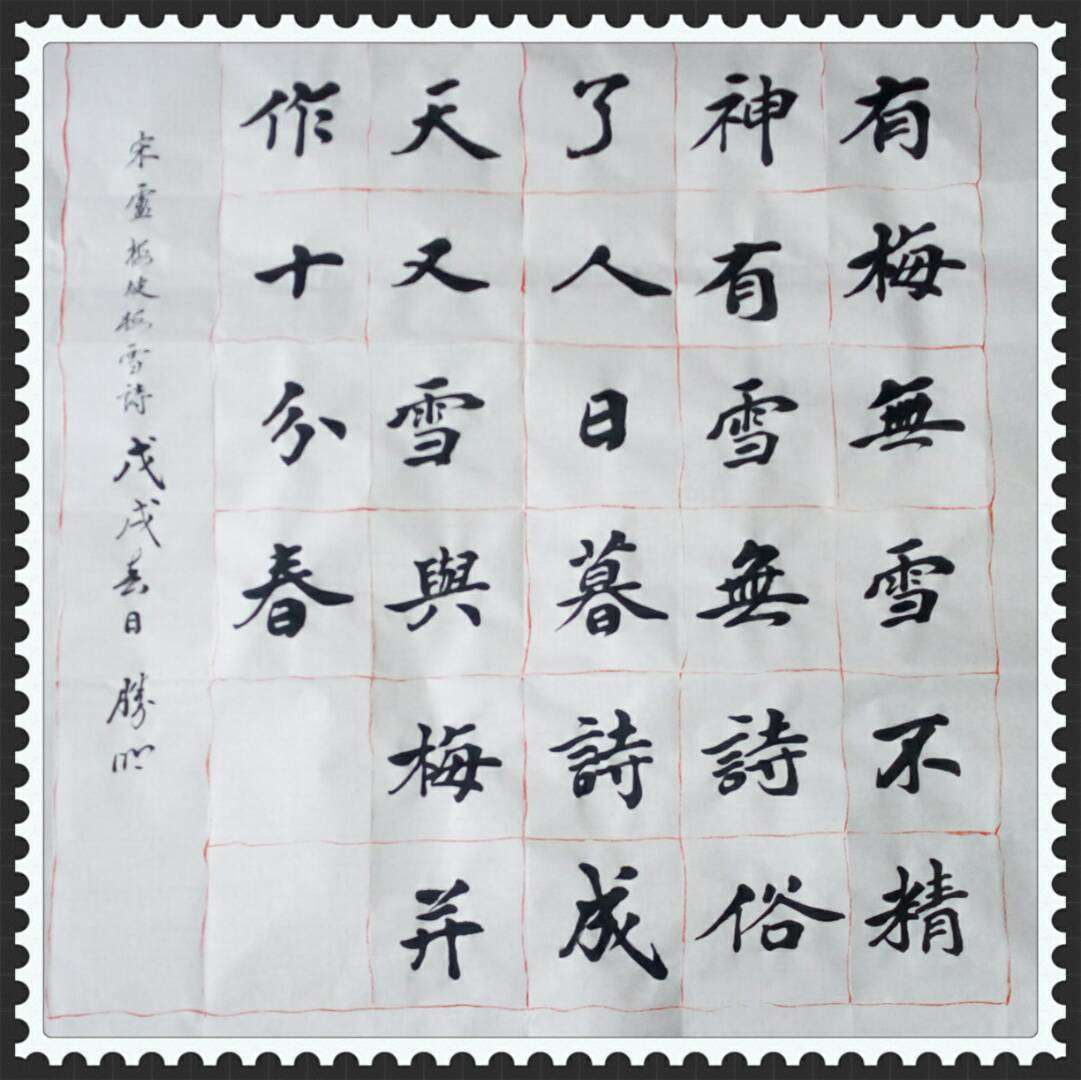 有梅無雪不精
神有雪無詩俗
了人日暮詩成
天又雪與梅并
作十分春
宋雪梅坡梅雪詩戊戌春日勝